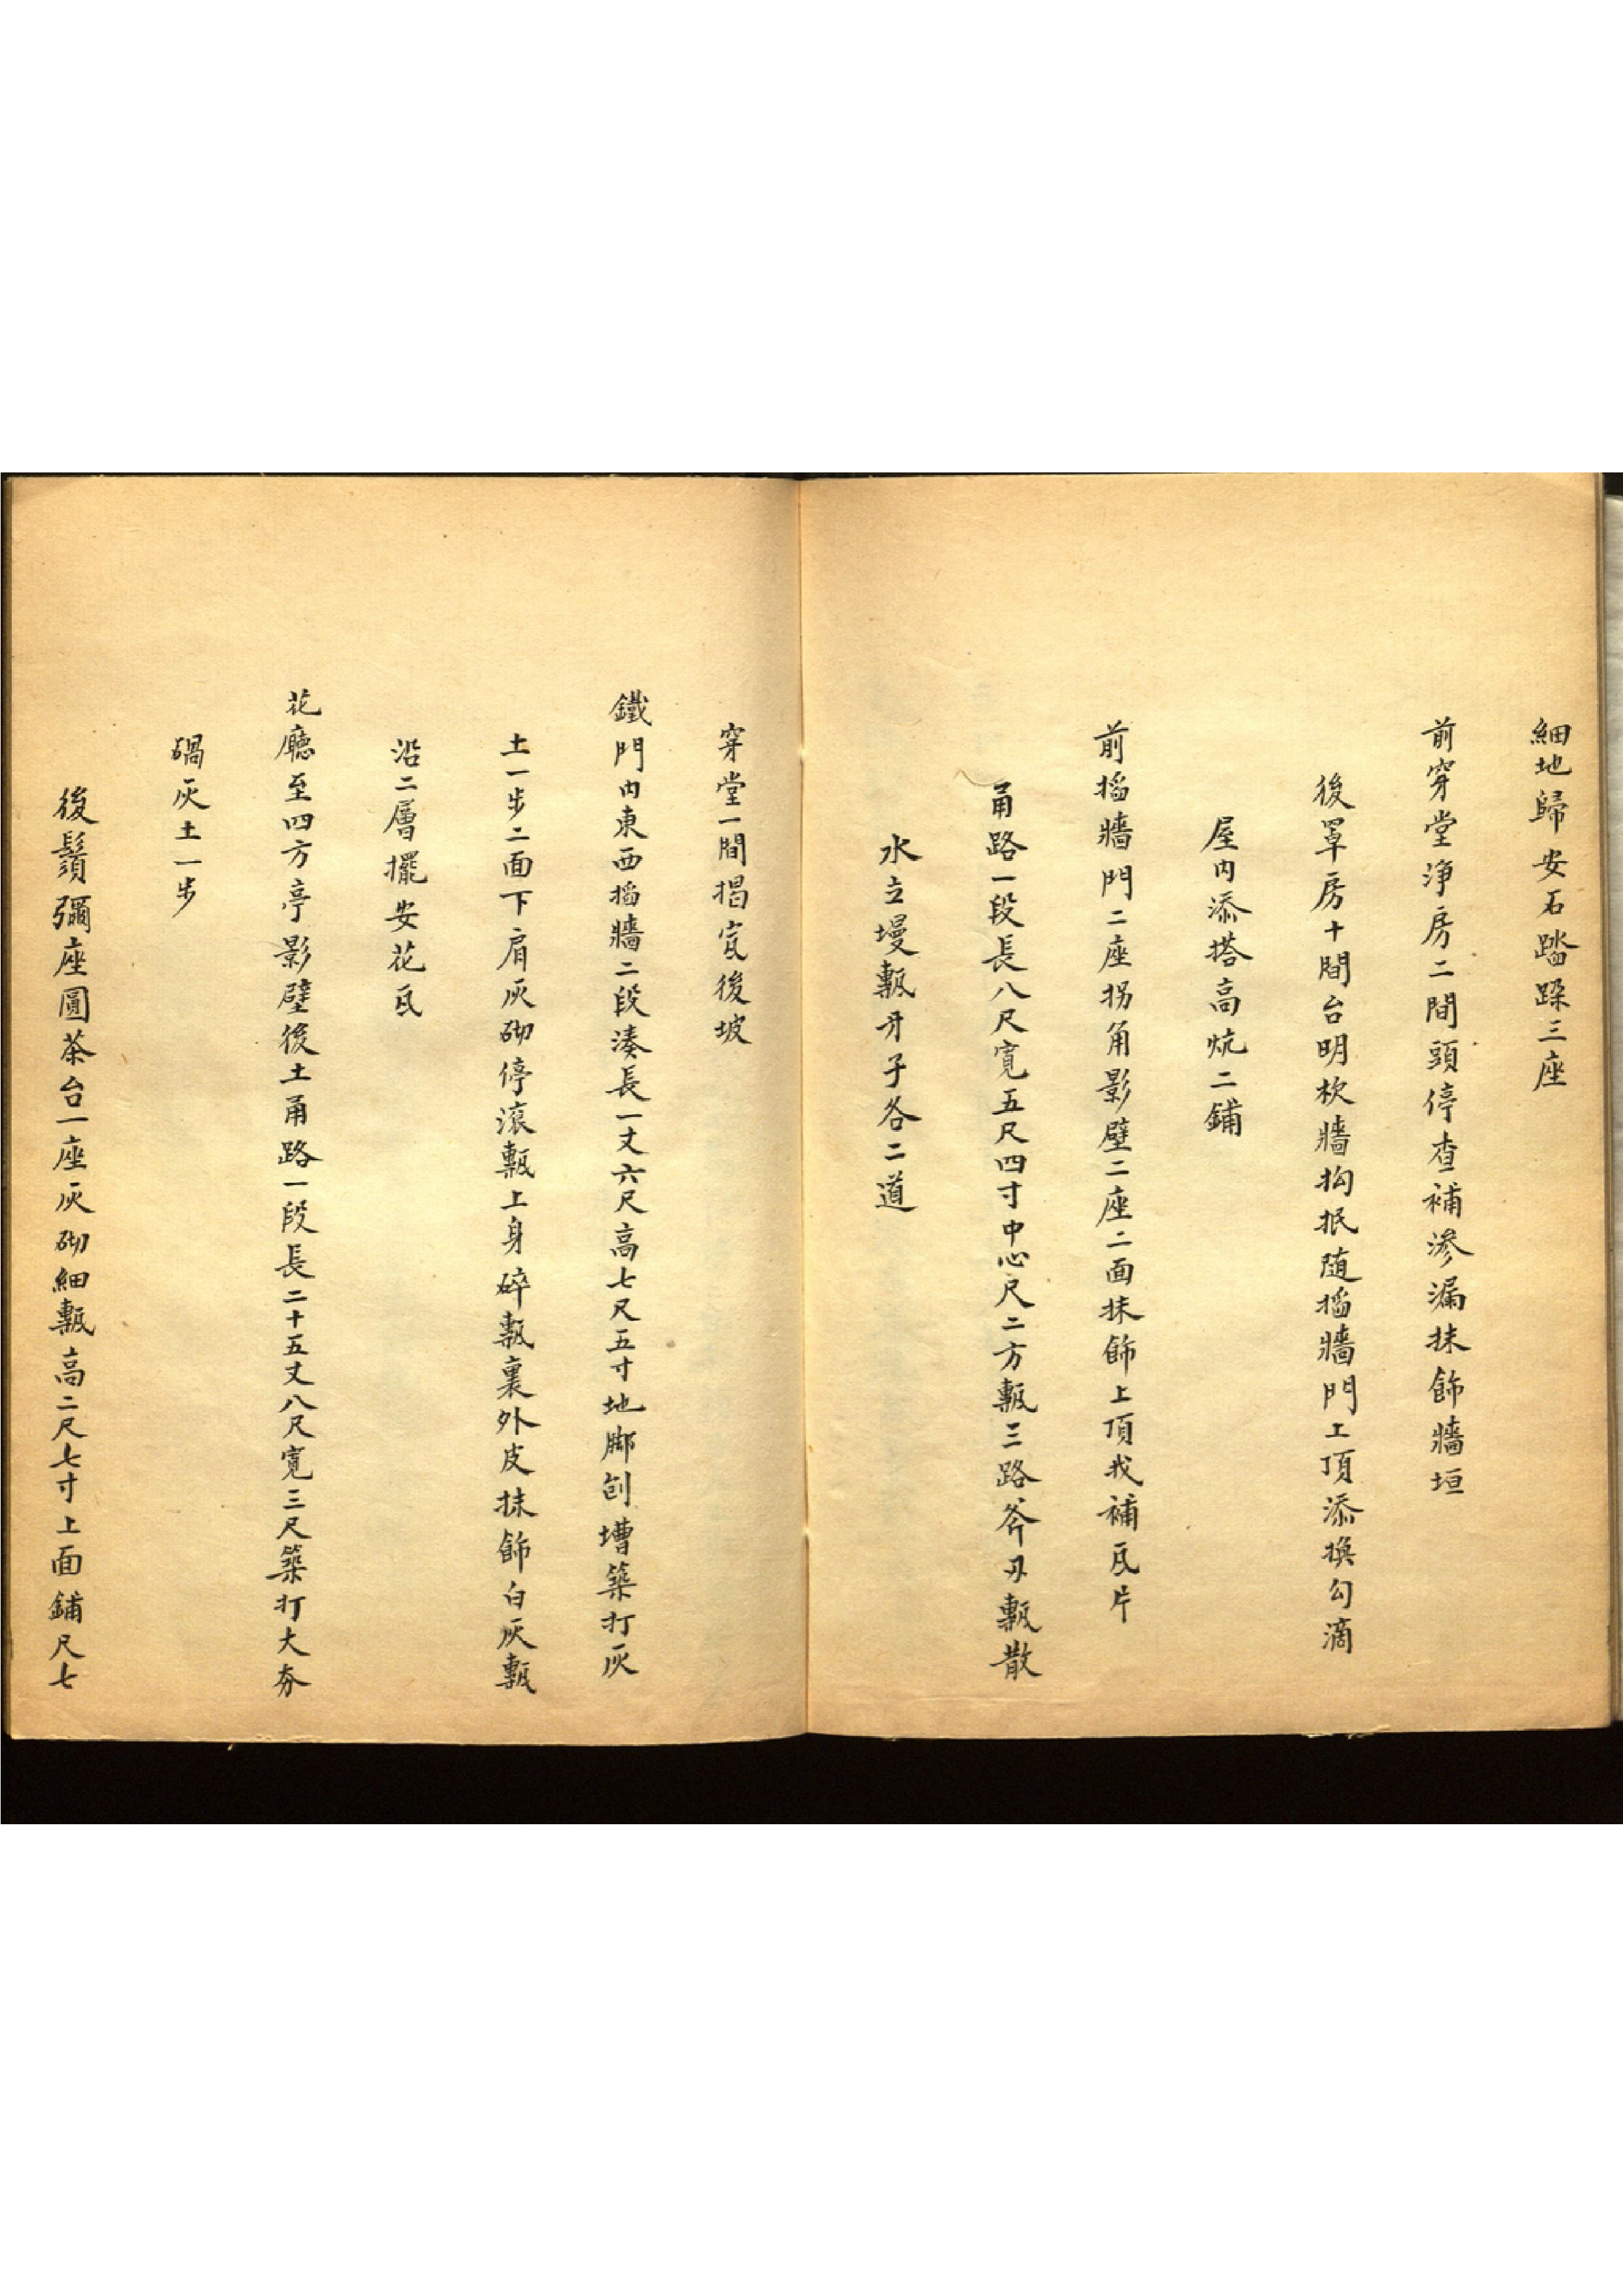 細地歸安石踏跺三座
前穿堂淨房二間頭停查補滲漏抹飾牆垣
後罩房十間台明砍牆拘抿随搯牆門上頂添換勾滴
屋内添搭高炕二鋪
前搯牆門二座拐角影壁二座二面抹飾上頂找補瓦片
甬路一段長八尺寬五尺四寸中心尺二方甎三路斧刃甎散
水立墁甎牙子各二道
穿堂一間揭瓦後坡
鐵門内東西搯牆二段湊長一丈六尺高七尺五寸地脚刨墁築打灰
土一步二面下肩灰砌停滚甎上身碎甎裏外皮抹飾白灰甎
沿二層擺安花瓦
花廳至四方亭影壁後土甬路一段長二十五丈八尺寬三尺築打大夯
碢灰土一步
後鬚彌座圓茶台一座灰砌細甎高二尺七寸上面鋪尺七